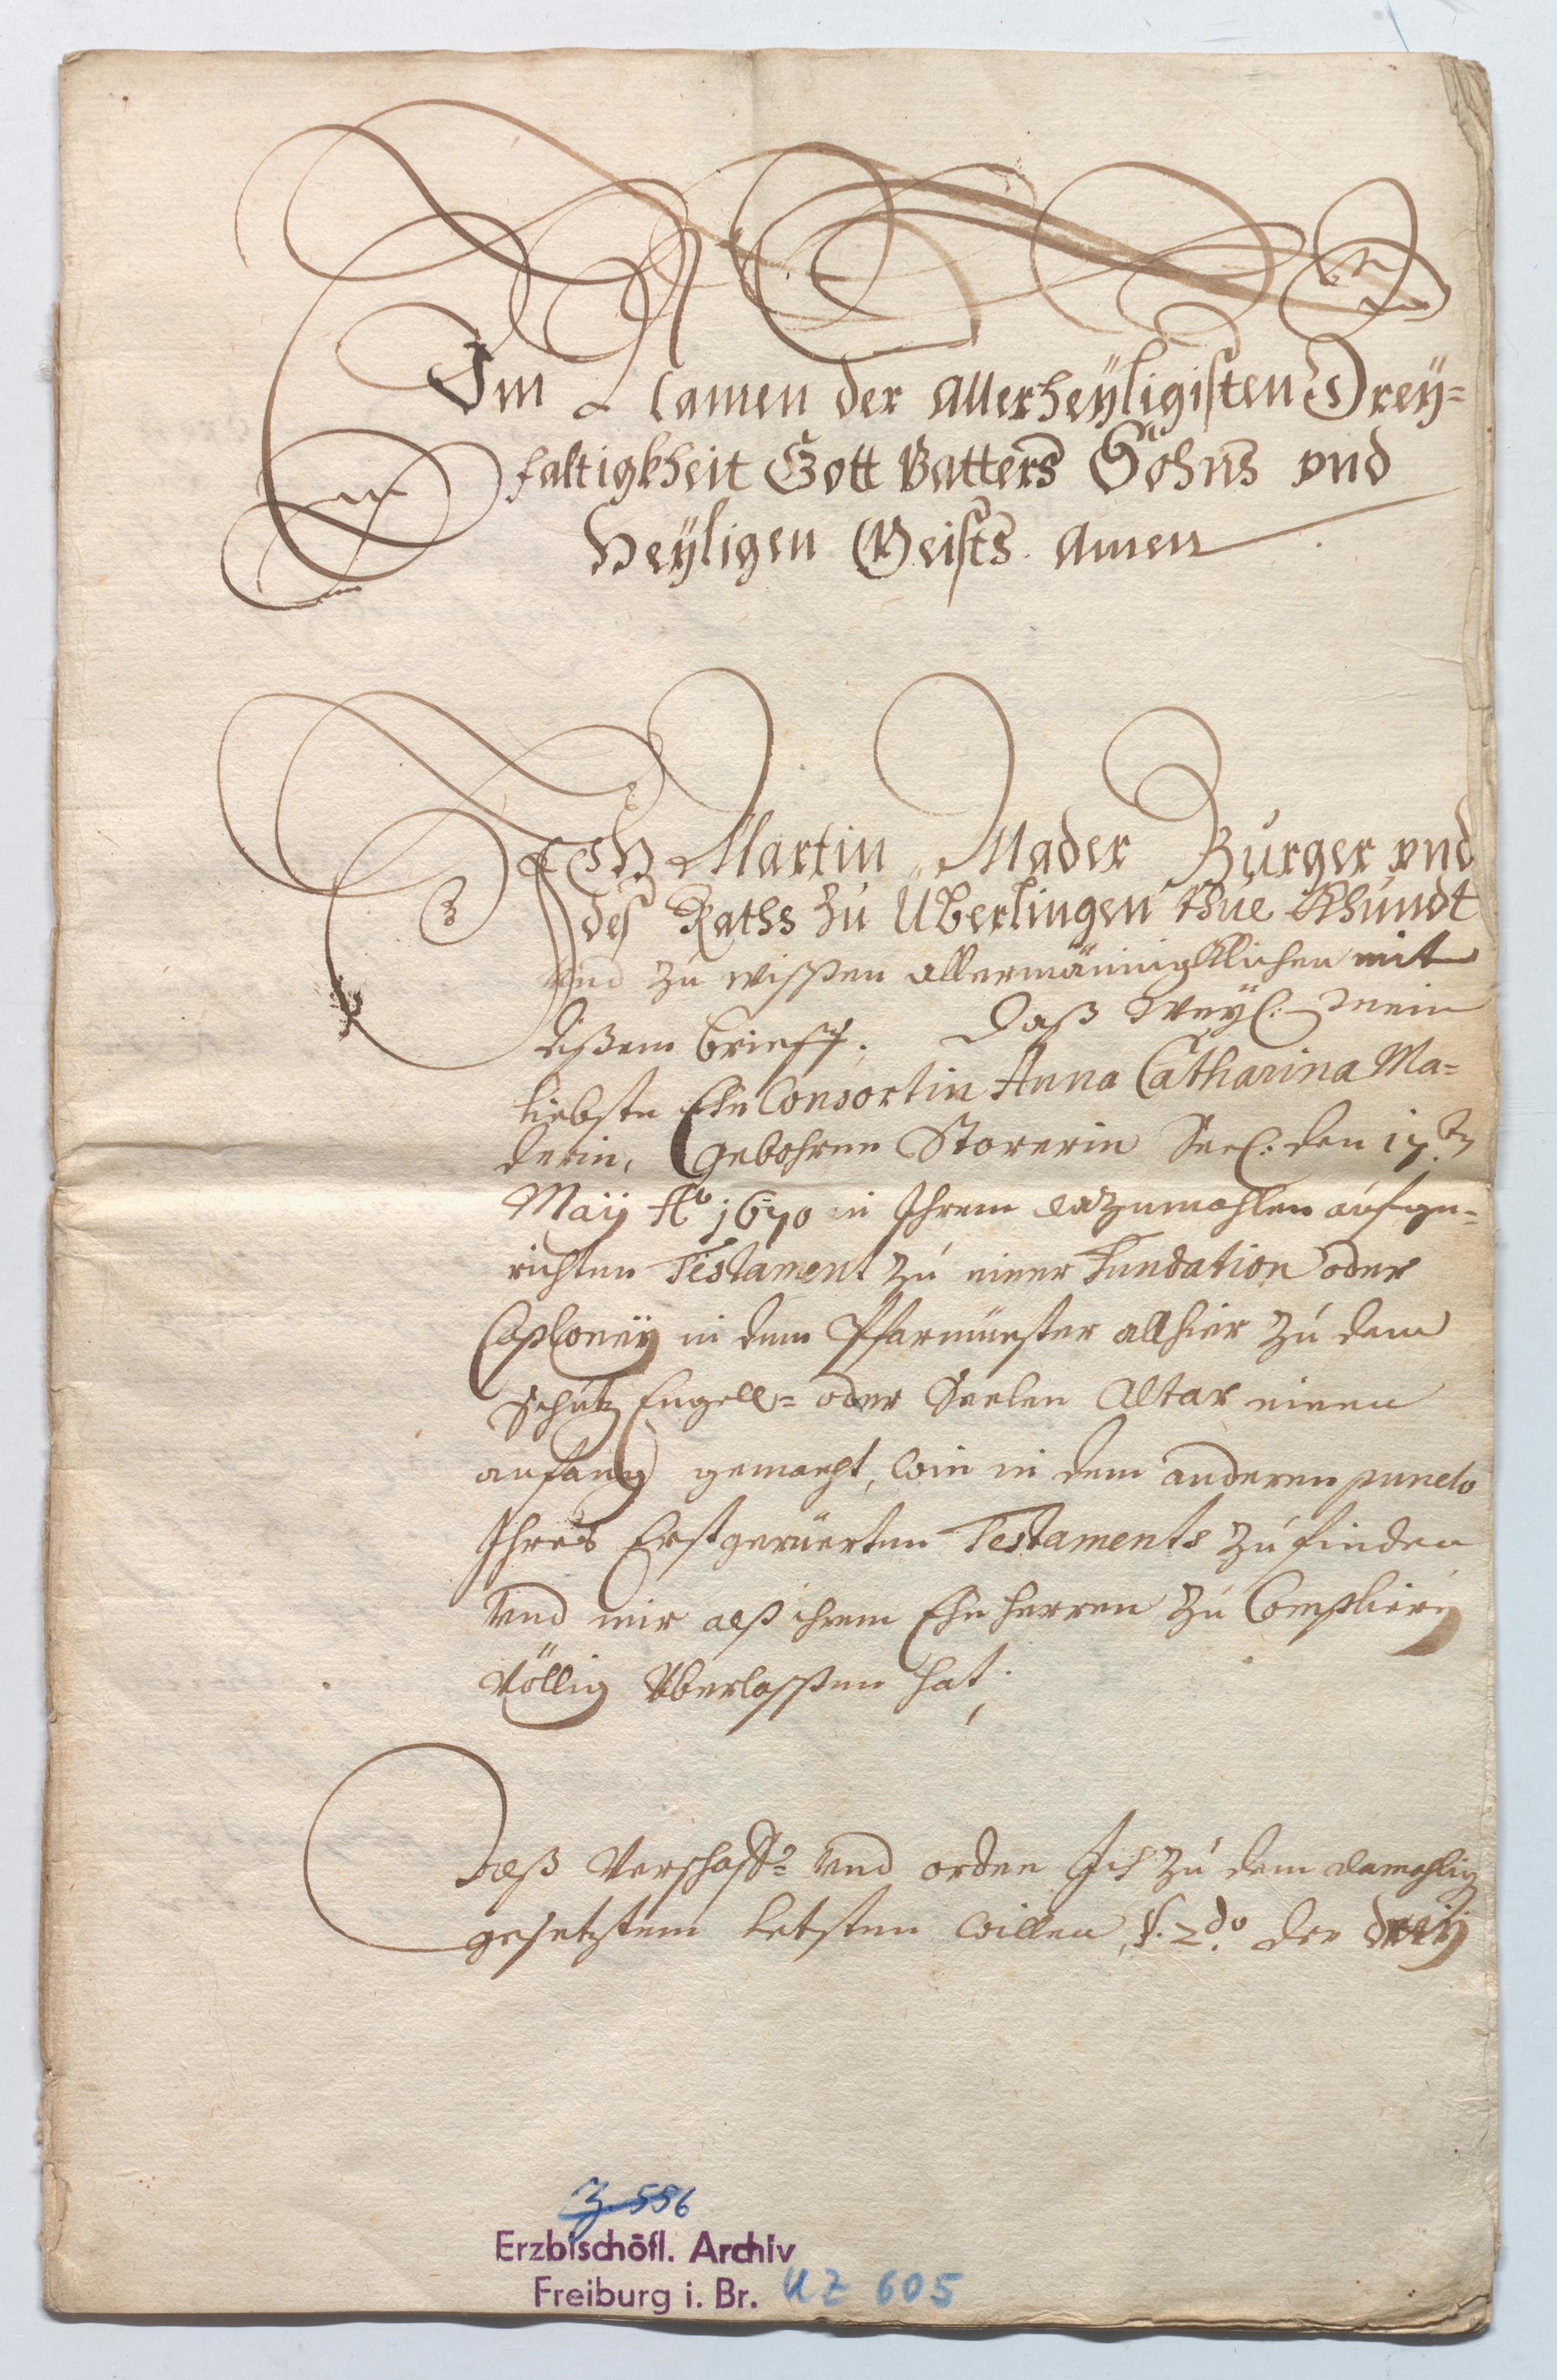 Im Namen der Allerheÿligisten Dreÿ=
faltigkheit Gott Vatters Sohns vnd
Heÿligen Geists. Amen
Ich Martin Mader Burger vnd
deß Raths zu Uberlingen thue khundt
vnd zu wissen allermänniglichen mit
dißem brieff. Daß weÿl: mein
liebste Ehe Consortin Anna Catharina Ma=
derin, gebohrne Storerin Seel: den 17.ten
Maÿ Ao 1670 in Ihrem dazumahlen aufge=
richten Testament zu einer Fundation oder
Caploneÿ in dem Pfarmünster allhier zu dem
Schutz Engell= oder Seelen Altar einen
anfang gemacht, wie in dem anderen puncto
Ihres Erstgerüerten Testaments zu finden
vnd mir alß ihrem Ehe herren zu Complieren
völlig Uberlassen hat;
Alß Verschaff= vnd orden Ich zu dem damahlig
gesetztem letsten willen, §. 2do. der dreÿ
Z 556
Erzbischöfl. Archiv
Freiburg i. Br. UZ 605